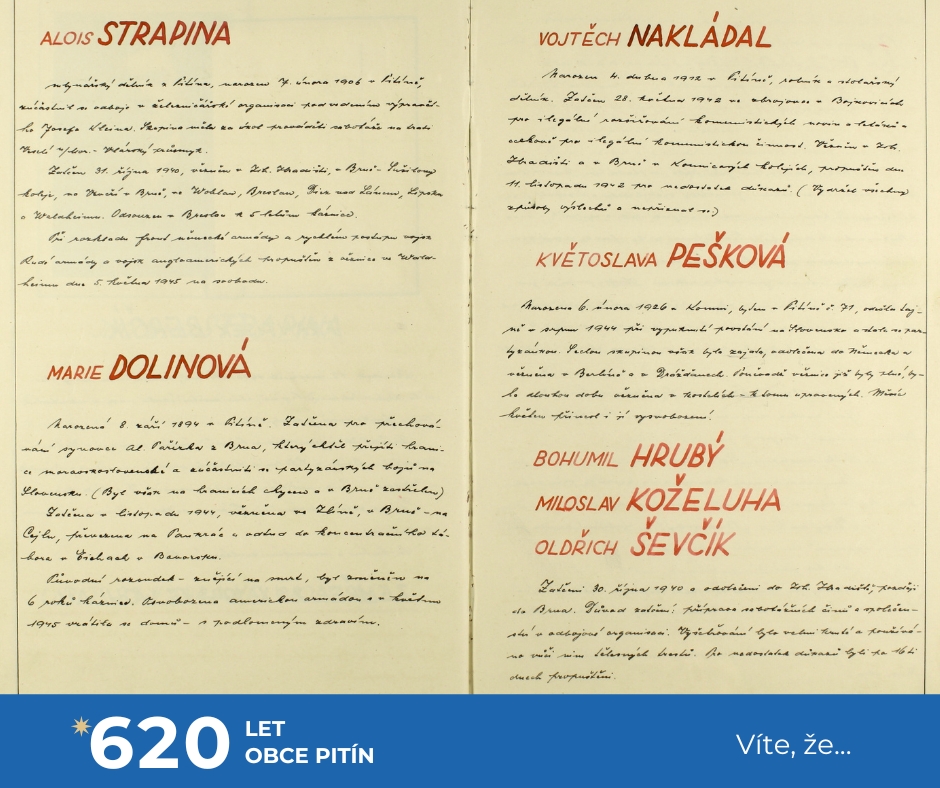 ALOIS STRAPINA
mlynářský dělník z Pitína, narozen 7. února 1906 v Pitíně,
zúčastnil se odboje v železničářské organisaci pod vedením výpravčí-
ho Josefa Kleina. Skupina měla za úkol prováděti sabotáže na trati
Veselí n/Mor. - Vlárský průsmyk.
Zatčen 31. října 1940, vězněn v Uh. Hradišti, v Brně - Sušilovy
koleje, na Cejlu v Brně, ve Wohlau, Breslau, Lipsku
a Waldheimu. Odsouzen v Breslau k 5 letům káznice.
Při rozkladu front německé armády a rychlém postupu vojsk
Rudé armády a vojsk angloamerických propuštěn z věznice ve Wald-
heimu dne 5. května 1945 na svobodu.
MARIE DOLINOVÁ
Narozená 8. září 1894 v Pitíně. Zatčena pro přechová-
vání synovce Al. Pařízka z Brna, který chtěl přejíti hrani-
ce moravskoslovenské a zúčastniti se partyzánských bojů na
Slovensku. (Byl však na hranicích chycen a v Brně zastřelen)
Zatčena v listopadu 1944, vězněna ve Zlíně, v Brně - na
Cejlu, převezena na Pankrác a odtud do koncentračního tá-
bora v Eichach v Bavorsku.
Původní rozsudek - znějící na smrt, byl změněn na
6 roků káznice. Osvobozena americkou armádou a v květnu
1945 vrátila se domů - s podlomeným zdravím.
VOJTĚCH NAKLÁDAL
Narozen 4. dubna 1912 v Pitíně, rolník a stolařský
dělník. Zatčen 28. května 1942 ve zbrojovce v Bojkovicích
pro ilegální rozšiřování komunistických novin a letáků a
celkově pro ilegální komunistickou činnost. Vězněn v Uh.
Hradišti a v Brně v Kounicových kolejích, propuštěn dne
11. listopadu 1942 pro nedostatek důkazů. (Vydržel všechny
způsoby výslechů a nepřiznal se.)
KVĚTOSLAVA PEŠKOVÁ
Narozena 6. února 1926 v Komni, bytem v Pitíně č. 71, odešla taj-
ně v srpnu 1944 při vypuknutí povstání na Slovensko a stala se par-
tyzánkou. S celou skupinou však byla zajata, odvlečena do Německa a
vězněna v Berlíně a v Drážďanech. Poněvadž věznice již byly plné, by-
la dlouhou dobu vězněna v kostelích - k tomu upravených. Měsíc
květen přinesl i jí vysvobození.
BOHUMIL HRUBÝ
MILOSLAV KOŽELUHA
OLDŘICH ŠEVČÍK
Zatčeni 30. října 1940 a odvlečeni do Uh. Hradiště, později
do Brna. Důvod zatčení: příprava sabotážních činů a společen-
ství v odbojové organisaci. Vyšetřování bylo velmi kruté a používá-
no vůči nim tělesných trestů. Pro nedostatek důkazů byli po 16ti
dnech propuštěni.
620 LET
OBCE PITÍN
Víte, že...